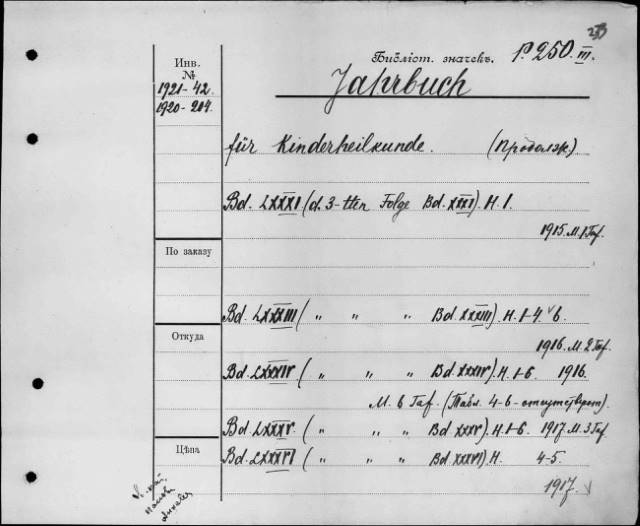 Инв. № Бібліот. значекъ. P. 250 III.
1921-42. Jahrbuch
1920-204.
für Kinderheilkunde. (Продолж.)
Bd. LXXXI (d. 3-tten Folge Bd. XXXI). H. 1.
1915. M. 1 Taf.
По заказу
Bd. LXXXIII ( „ „ „ Bd. XXXIII). H. 1-4. 6.
1916. M. 2 Taf.
Откуда
Bd. LXXXIV ( „ „ „ Bd. XXXIV). H. 1-6. 1916.
M. 6 Taf. (Табл. 4-6 - отсутствуют).
Bd. LXXXV. ( „ „ „ Bd. XXXV). H. 1-6. 1917. M. 3 Taf.
Цѣна
Bd. LXXXVI ( „ „ „ Bd. XXXVI). H. 4-5.
1917.